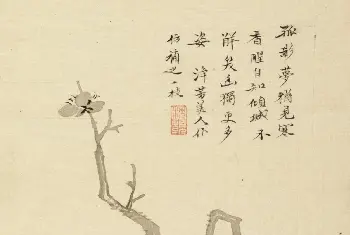 孤影夢猶見寒
香醒自知傾城不
解矣幽獨更多
姿 洋菩美人作
仿補之一枝